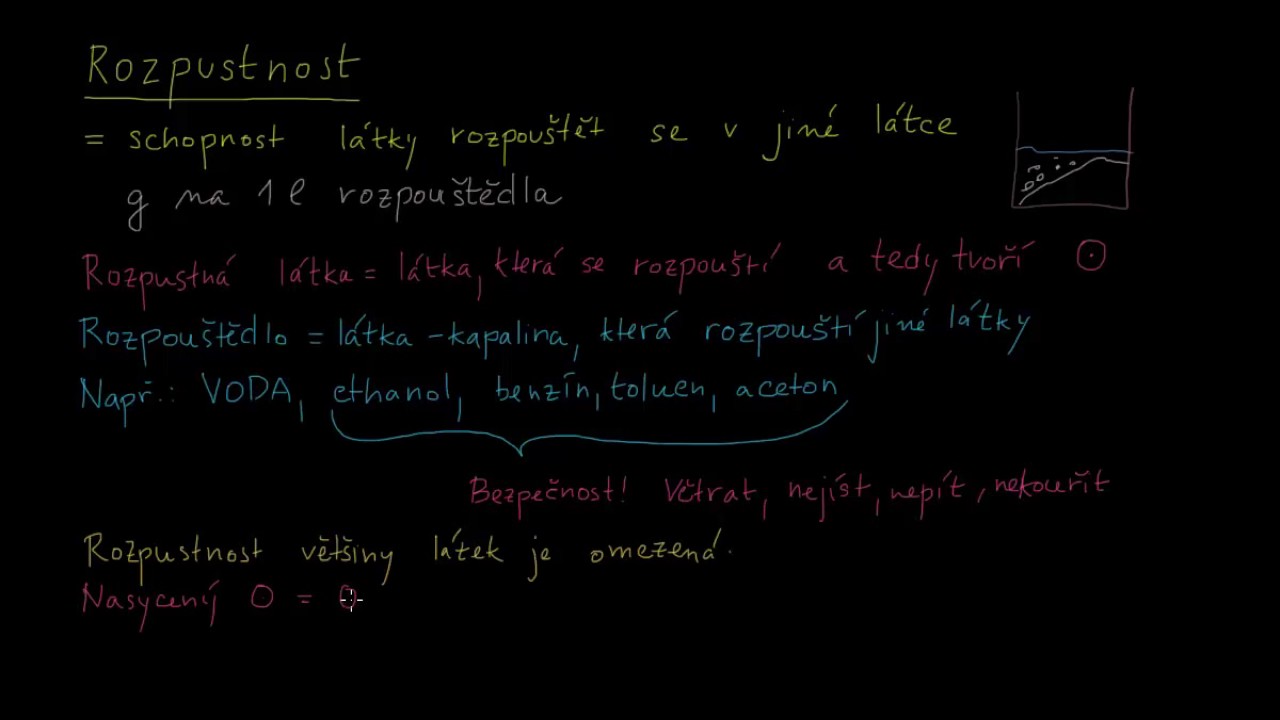 Rozpustnost
= schopnost látky rozpouštět se v jiné látce
g na 1 l rozpouštědla
Rozpustná látka = látka, která se rozpouští a tedy tvoří ⊙
Rozpouštědlo = látka - kapalina, která rozpouští jiné látky
Např.: VODA, ethanol, benzín, toluen, aceton
Bezpečnost! Větrat, nejíst, nepít, nekouřit
Rozpustnost většiny látek je omezená.
Nasycený ⊙ = ⊙